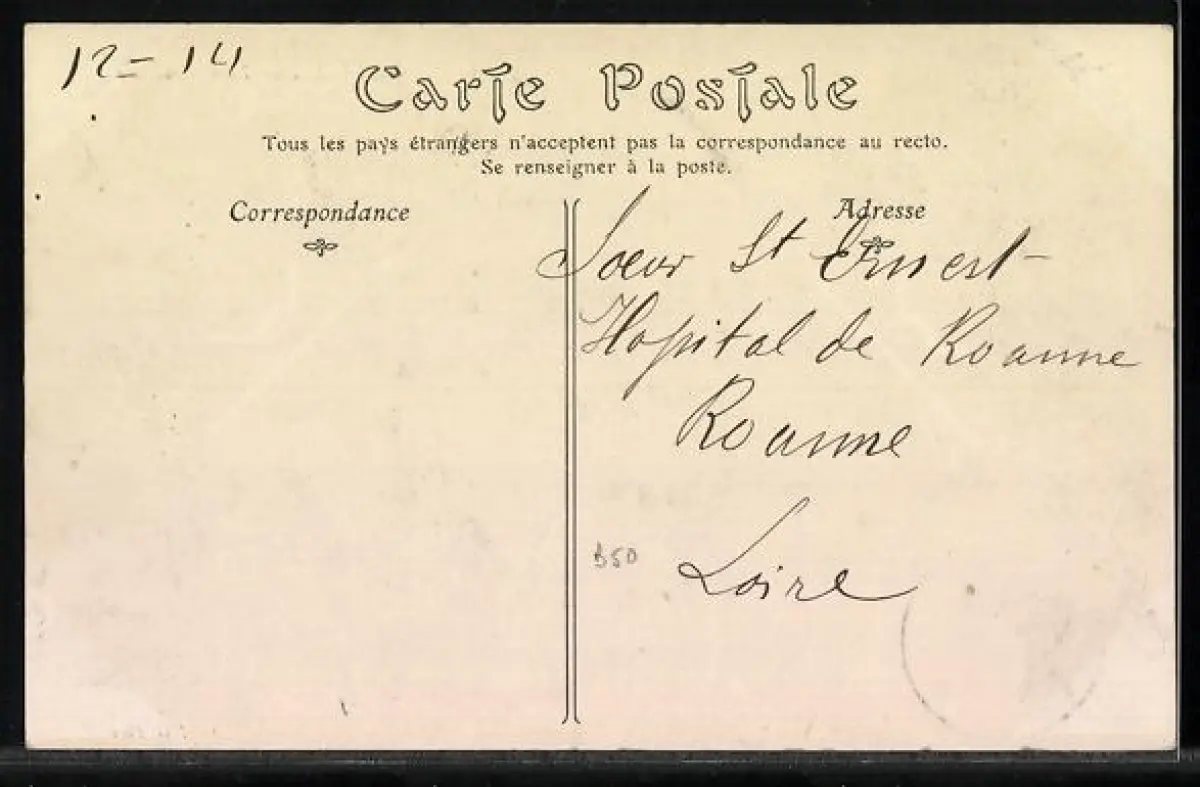 12-14
Carte Postale
Tous les pays étrangers n'acceptent pas la correspondance au recto.
Se renseigner à la poste.
Correspondance
Adresse
Soeur St Ernest
Hopital de Roanne
Roanne
Loire
B50